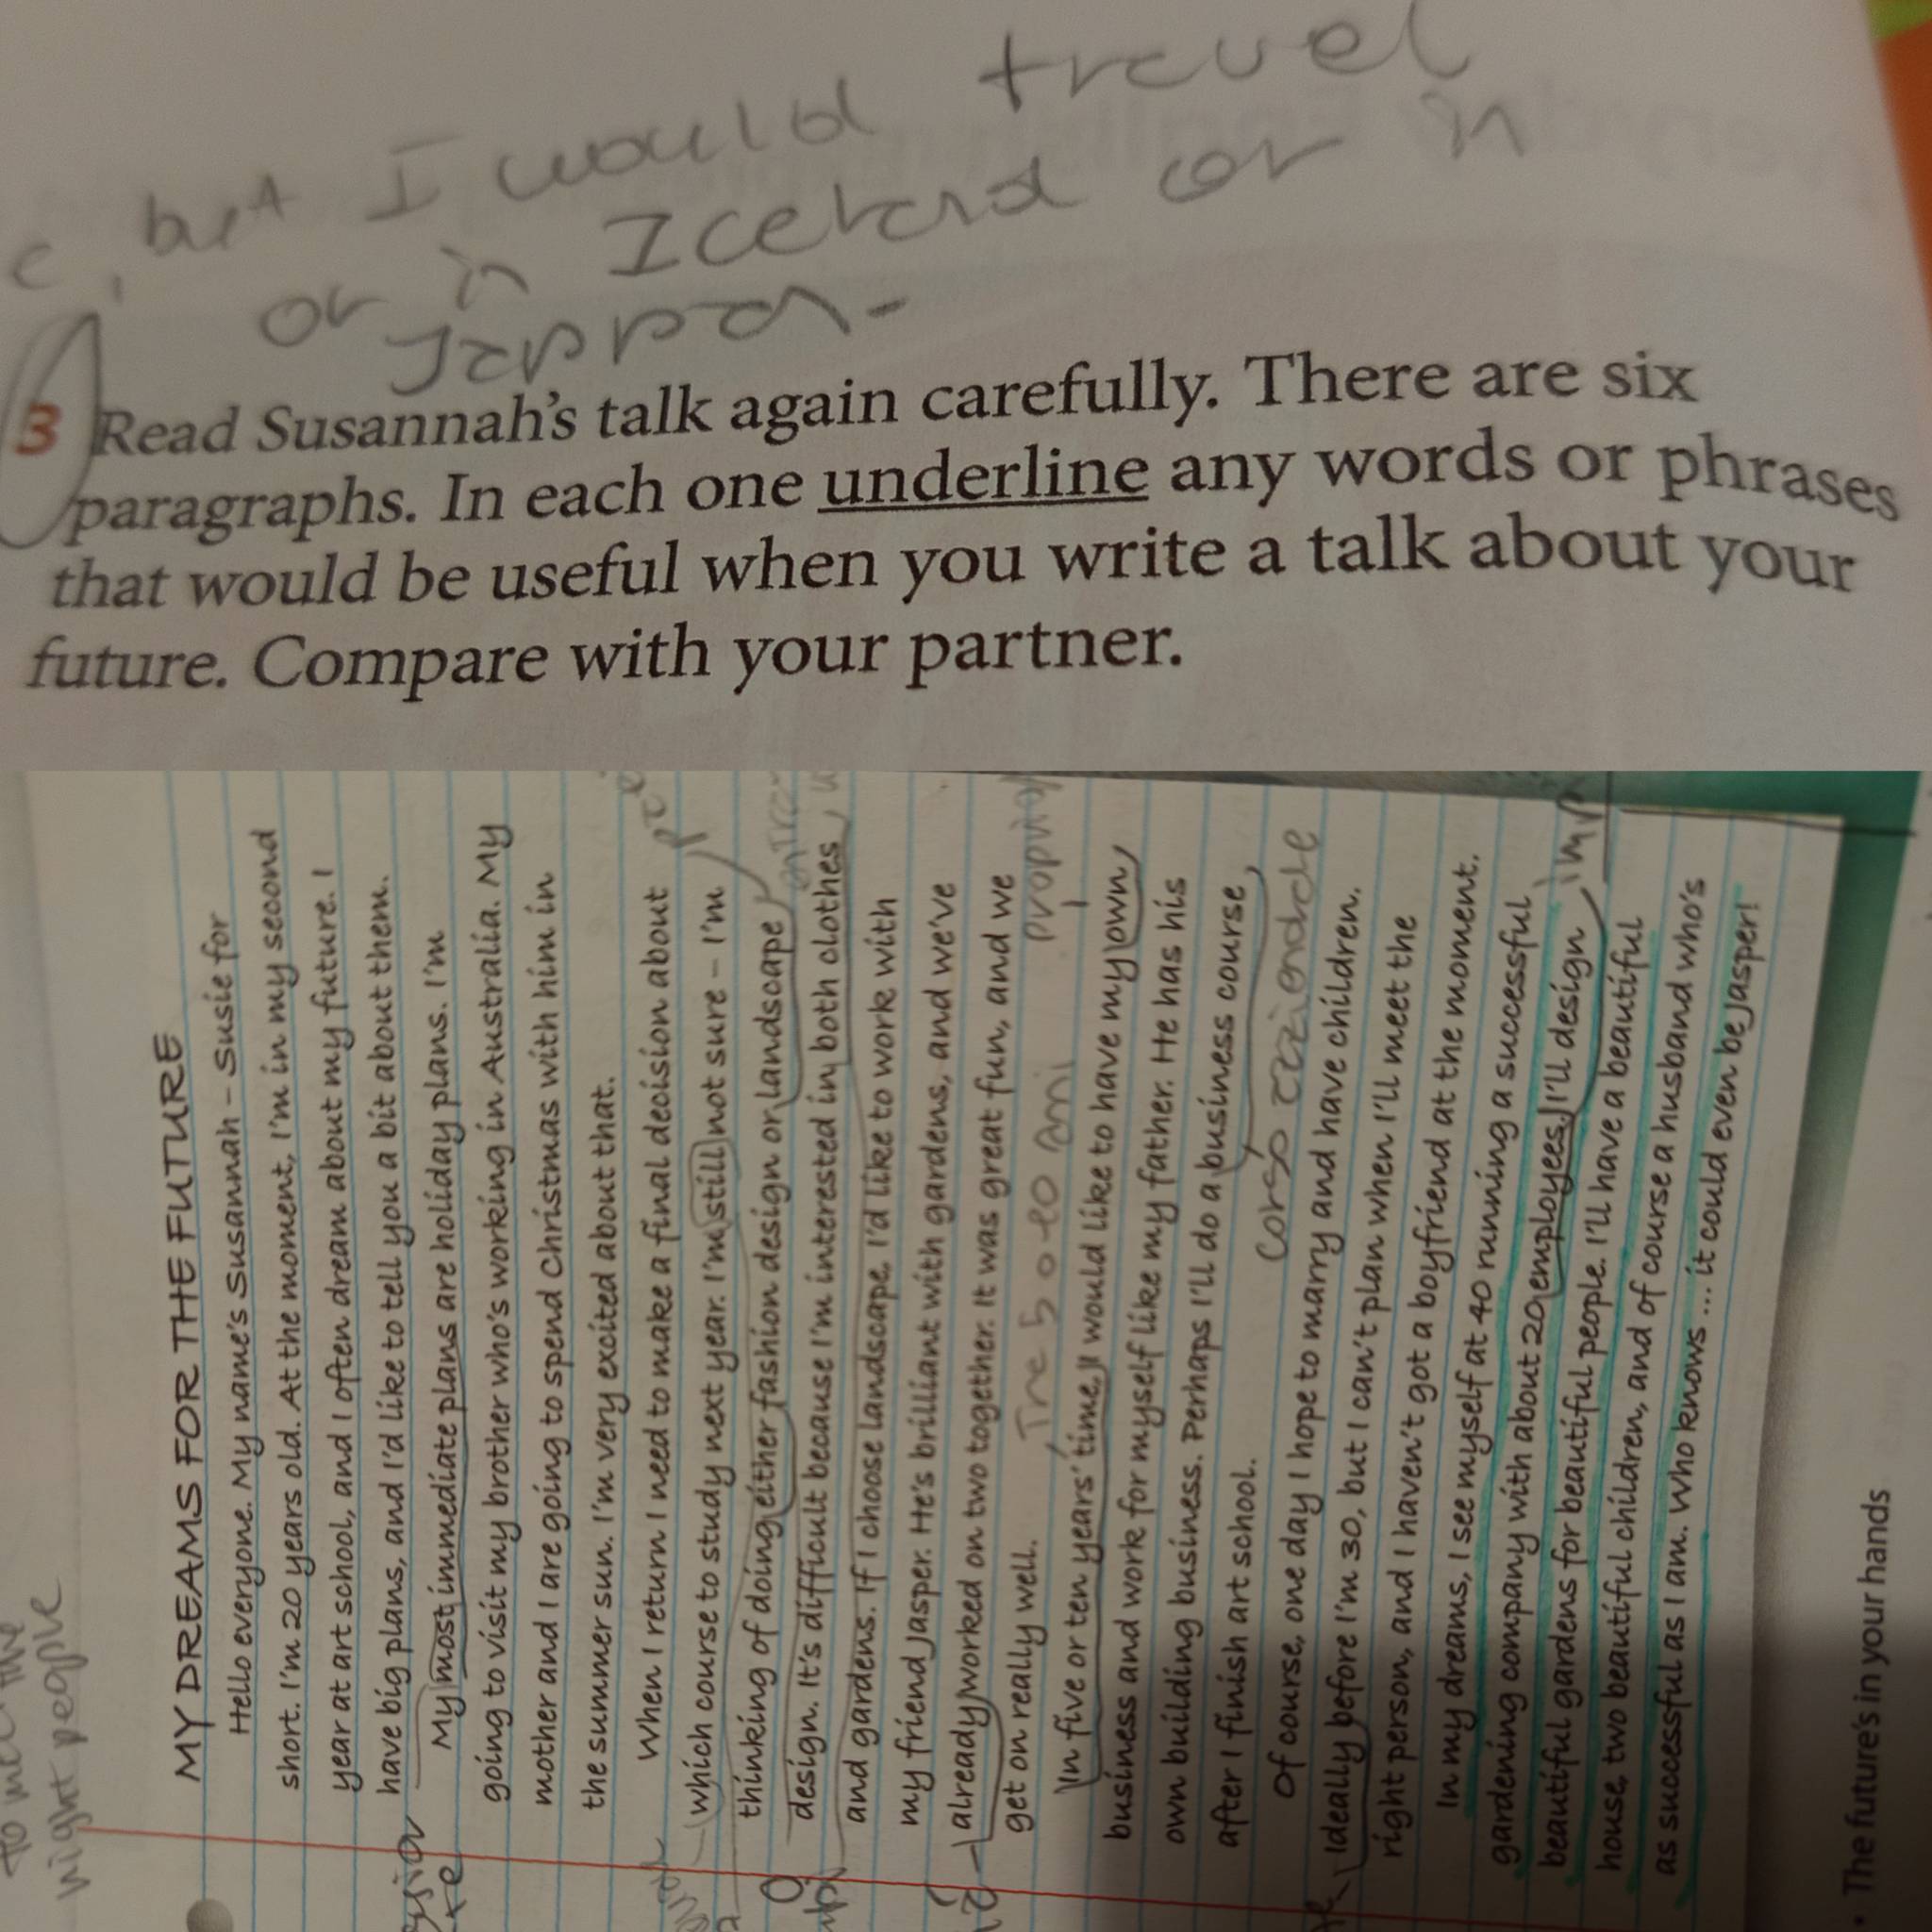 c, but I would travel
or in Iceland or in
Jappan.
3 Read Susannah's talk again carefully. There are six
paragraphs. In each one underline any words or phrases
that would be useful when you write a talk about your
future. Compare with your partner.
to
might people
MY DREAMS FOR THE FUTURE
Hello everyone. My name's Susannah – Susie for
short. I'm 20 years old. At the moment, I'm in my second
year at art school, and I often dream about my future. I
have big plans, and I'd like to tell you a bit about them.
My most immediate plans are holiday plans. I'm
going to visit my brother who's working in Australia. My
mother and I are going to spend Christmas with him in
the summer sun. I'm very excited about that.
When I return I need to make a final decision about
which course to study next year. I'm still not sure – I'm
thinking of doing either fashion design or landscape
design. It's difficult because I'm interested in both clothes
and gardens. If I choose landscape, I'd like to work with
my friend Jasper. He's brilliant with gardens, and we've
already worked on two together. It was great fun, and we
get on really well.
Tre 5 o 10 ani
In five or ten years' time, I would like to have my own
business and work for myself like my father. He has his
own building business. Perhaps I'll do a business course
after I finish art school.
corso aziendale
Of course, one day I hope to marry and have children.
Ideally before I'm 30, but I can't plan when I'll meet the
right person, and I haven't got a boyfriend at the moment.
In my dreams, I see myself at 40 running a successful
gardening company with about 20 employees. I'll design
beautiful gardens for beautiful people. I'll have a beautiful
house, two beautiful children, and of course a husband who's
as successful as I am. Who knows ... it could even be Jasper!
• The future's in your hands